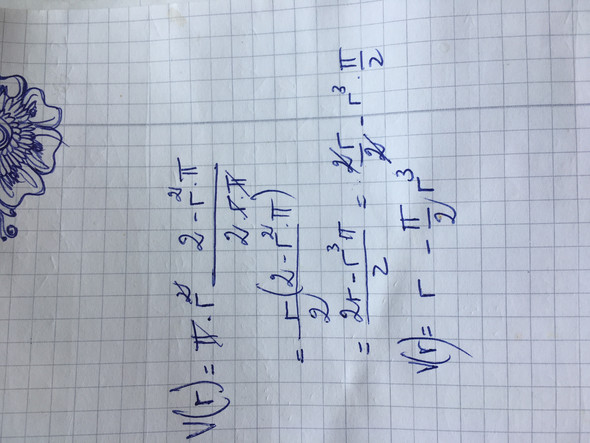 V(r) = π · r² (2 - r² · π)/(2 r · π)
= r(2 - r² · π)/2
= (2r - r³ π)/2 = 2r/2 - r³ · π/2
V(r) = r - π/2 r³